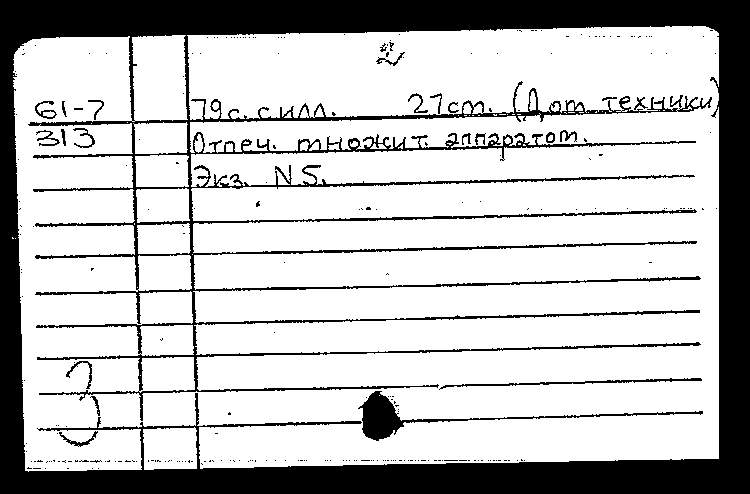 2
61-7 79 с. с илл. 27 см. (Дом техники)
313 Отпеч. множит. аппаратом.
Экз. N 5.
3